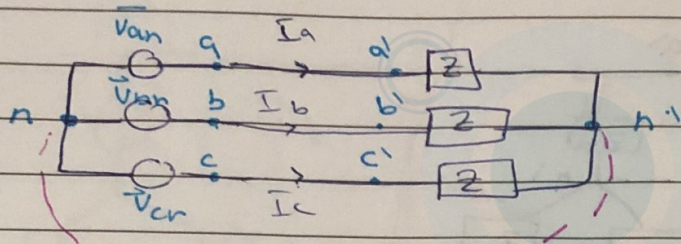 Van a Ia a' Z
n Vbn b Ib b' Z n'
Vcn c Ic c' Z